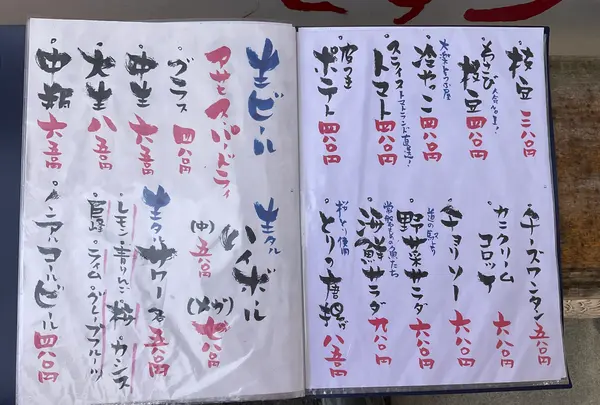 枝豆 三八〇円
わさび枝豆 四八〇円
大人気!
大栄とうふ屋
冷やっこ 四八〇円
スライストマト 四八〇円
トマトランド直送!
皮つき
ポテト 四八〇円
チーズワンタン 五八〇円
カニクリーム
コロッケ 六八〇円
チョリソー 六八〇円
道の駅より
野菜サラダ 六八〇円
常磐ものの魚たち
海鮮サラダ 九八〇円
桜どり使用
とりの唐揚げ 八五〇円
生ビール
アサヒスーパードライ
グラス 四八〇円
中生 六五〇円
大生 八五〇円
中瓶 六五〇円
生タル
ハイボール
(中) 五八〇円
(メガ) 七八〇円
生タル
サワー各 五八〇円
・レモン・青りんご・桜・カシス
・ライム・グレープフルーツ
ノンアルコールビール 四八〇円